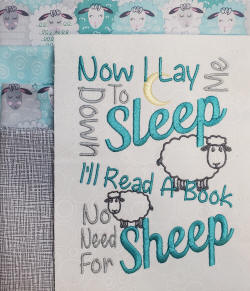 Now I Lay Me
Down To
Sleep
I'll Read A Book
No Need For
Sheep